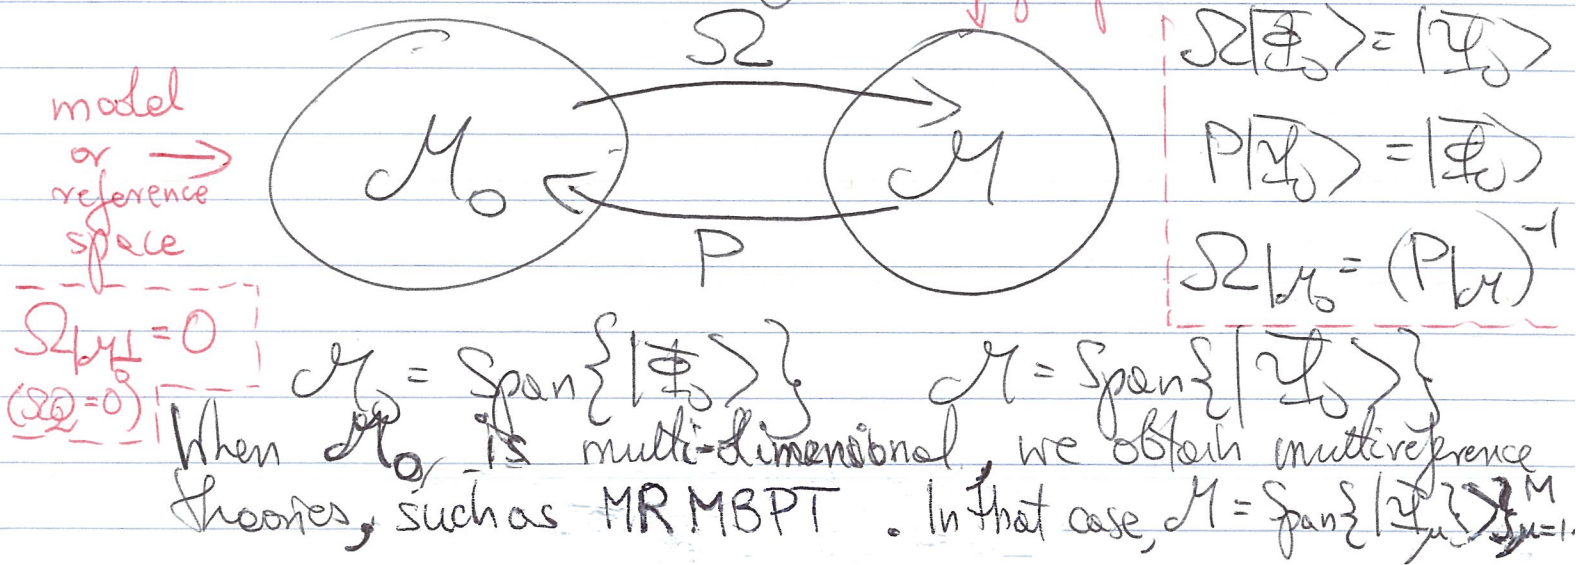 Ω
Ω|Φ₀⟩ = |Ψ₀⟩
model
or →
reference
space
ℳ₀
ℳ
P|Ψ₀⟩ = |Φ₀⟩
P
Ω|ℳ₀ = (P|ℳ)⁻¹
Ω|ℳ₀⊥ = 0
(ΩQ=0)
ℳ₀ = Span{|Φ₀⟩} ℳ = Span{|Ψ₀⟩}
When ℳ₀ is multi-dimensional, we obtain multireference
theories, such as MRMBPT. In that case, ℳ = Span{|Ψμ⟩}ᴹμ=1.